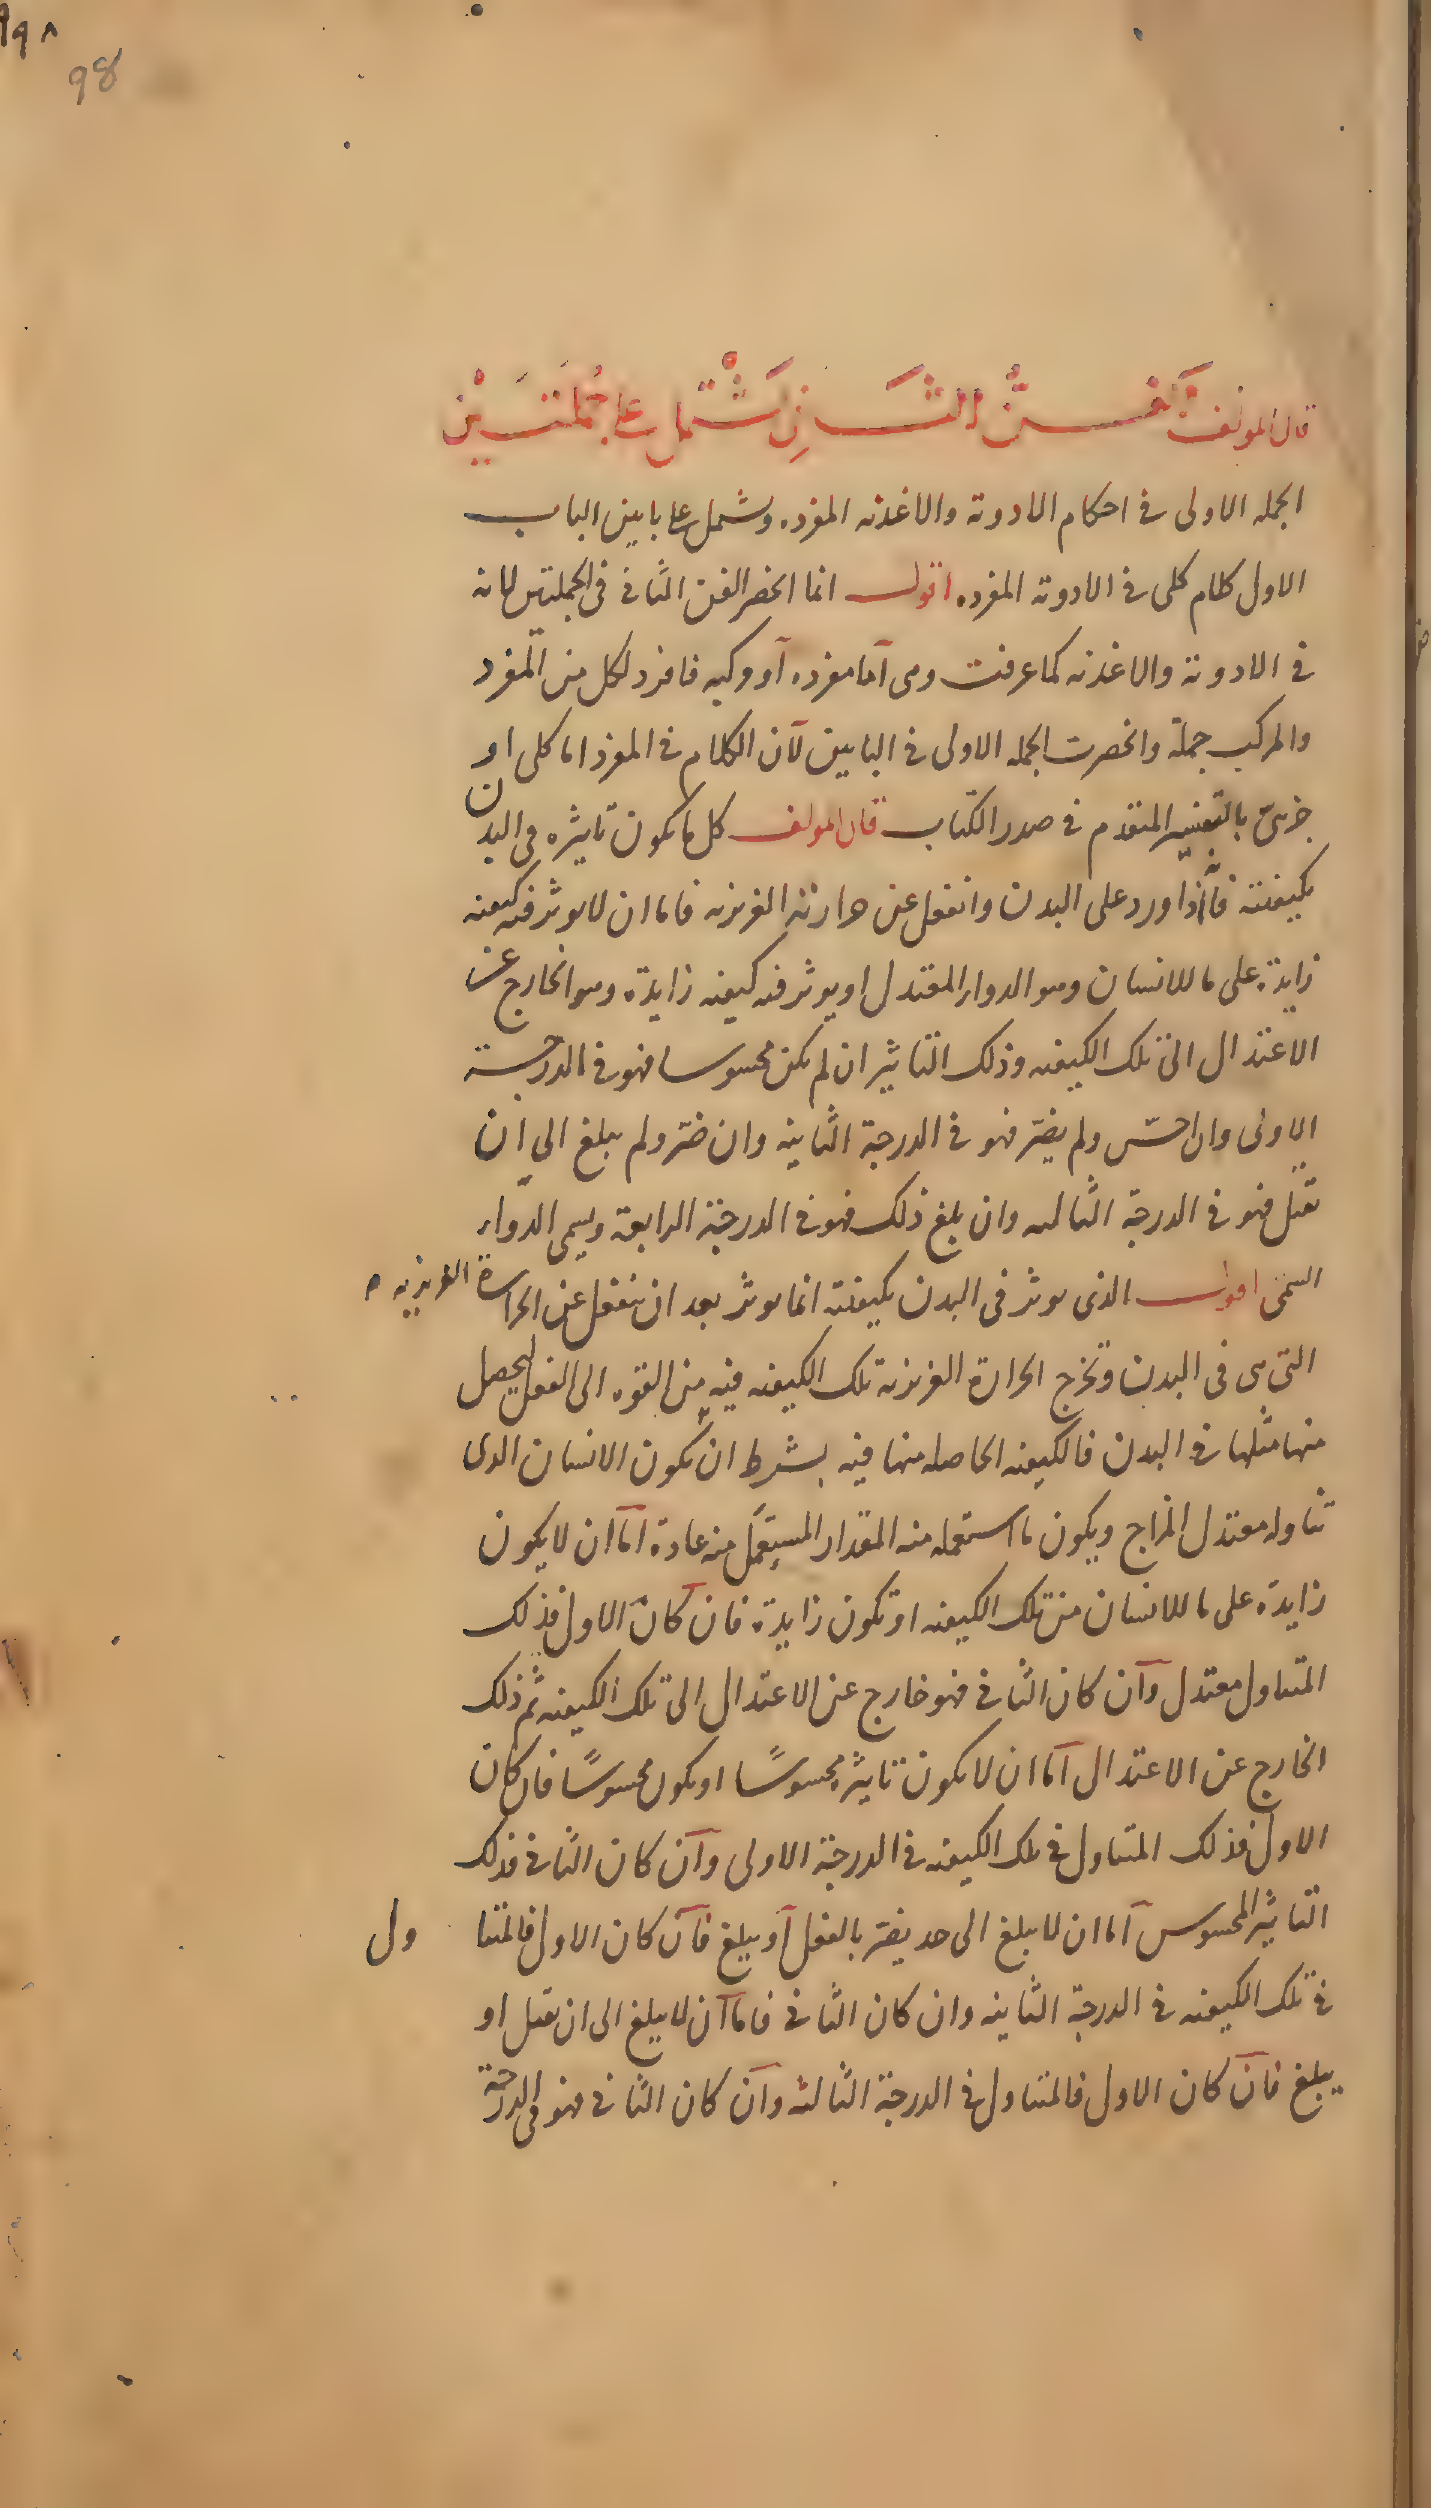 ٩٩٨
98
قال المولف الفن الثاني يشتمل على جملتين
الجمله الاولى في احكام الادوية والاغذيه المفرده وشتمل على بابين الباب
الاول كلام كلى في الادوية المفرده اقول انما انحصر الفن الثاني في الجملتين لانه
في الادوية والاغذيه كما عرفت وهى اما مفرده او مركبه فافرد لكل من المفرد
والمركب جملة وانحصرت الجمله الاولى في البابين لان الكلام في المفرد اما كلى او
جزئىّ بالتفسير المتقدم في صدر الكتاب قال المولف كل ما يكون تاثيره في البدن
بكيفيته فانه اذا ورد على البدن وانفعل عن حرارته الغريزيه فاما ان لا يوثر فيه كيفيه
زايدة على ما للانسان وهو الدواء المعتدل او يوثر فيه كيفيه زايدة وهو الخارج عن
الاعتدال الى تلك الكيفيه وذلك التاثير ان لم يكن محسوسا فهو في الدرجة
الاولى وان احسّ ولم يضرّ فهو في الدرجة الثانيه وان ضرّ ولم يبلغ الى ان
تقتل فهو في الدرجة الثالثه وان بلغ ذلك فهو في الدرجة الرابعة ويسمى الدواء
السمى اقول الذى يوثر في البدن بكيفيته انما يوثر بعد ان ينفعل عن الحرارة الغريزيه
التى هى في البدن وتخرج الحرارة الغريزية تلك الكيفيه فيه من القوه الى الفعل ليحصل
منها مثلها في البدن فالكيفيه الحاصله منها فيه بشرط ان يكون الانسان الذى
تناوله معتدل المزاج ويكون ما استعمله منه المقدار المستعمل منه عادة اما ان لا يكون
زايدة على ما للانسان من تلك الكيفيه او تكون زايدة فان كان الاول فذلك
المتناول معتدل وان كان الثاني فهو خارج عن الاعتدال الى تلك الكيفيه ثم ذلك
الخارج عن الاعتدال اما ان لا يكون تاثيره محسوسًا او يكون محسوسًا فان كان
الاول فذلك المتناول في تلك الكيفيه في الدرجة الاولى وان كان الثاني فذلك
التاثير المحسوس اما ان لا يبلغ الى حد يضرّ بالفعل او يبلغ فان كان الاول فالمتناول
في تلك الكيفيه في الدرجة الثانيه وان كان الثاني فاما ان لا يبلغ الى ان يقتل او
يبلغ فان كان الاول فالمتناول في الدرجة الثالثه وان كان الثاني فهو في الدرجة